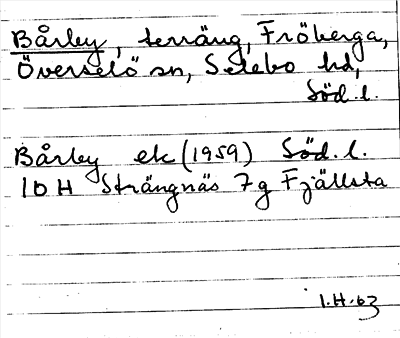 Bårby, terräng, Fröberga,
Överselö sn, Selebo hd,
Söd. l.
Bårby ek (1959) Söd. l.
10 H Strängnäs 7g Fjällsta
1.H.63